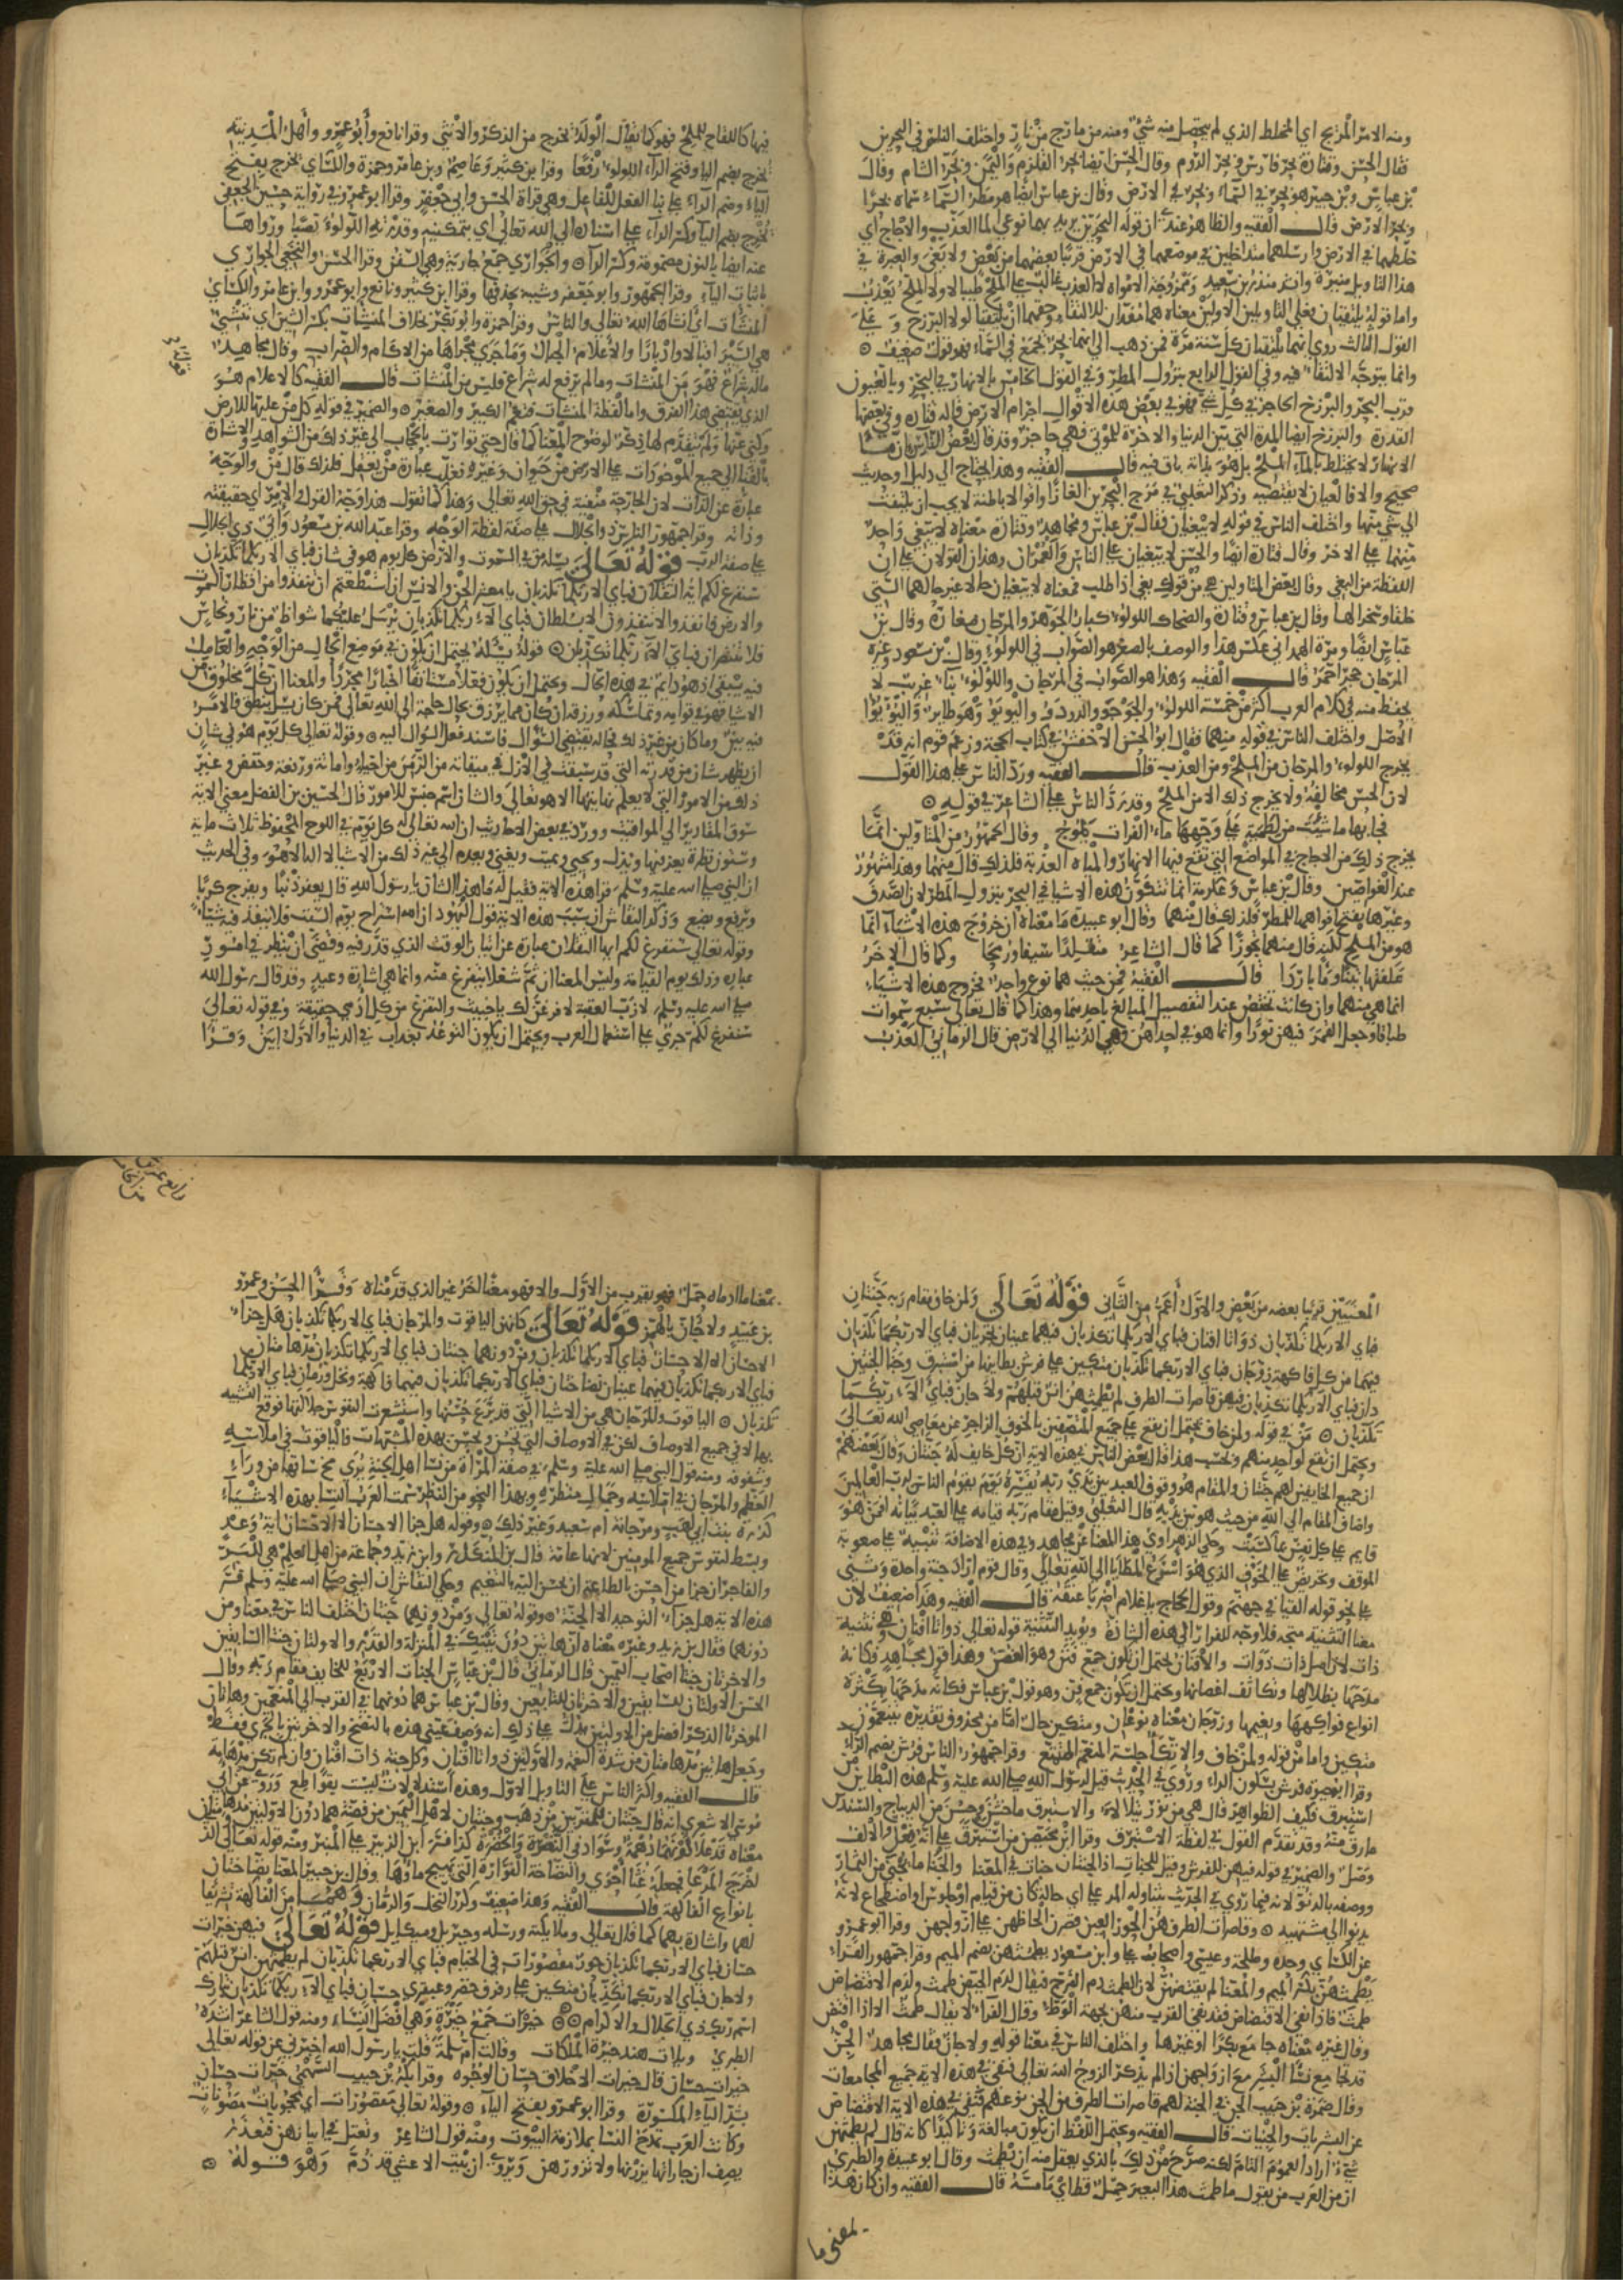 ومنه الامر المريج اي المختلط الذي لم يتحصل منه شي ومنه من مارج من نار واختلف الناس في البحرين
فقال الحسن وقتادة بحر فارس وبحر الروم وقال الحسن ايضا بحر القلزم واليمن وبحر الشام وقال
بن عباس وبن جبير هو بحر في السماء وبحر في الارض وقال بن عباس ايضا هو مطر السماء سماه بحرا
وبحر الارض قال الفقيه والظاهر عندي ان قوله البحرين يريد بها نوعي الما العذب والاجاج اي
خلطهما في الارض وارسلهما متداخلين في موضعهما في الارض قريبا بعضهما من بعض ولا بغي والعبرة في
هذا التاويل منيرة وانشد منذر بن سعيد وممزوجة الامواه لا العذب غالب على الملح طيبا لا ولا الملح يعذب
واما قوله يلتقيان فعلى التاويلين الاولين معناه هما معدان للالتقاء وحقهما ان يلتقيا لولا البرزخ وعلى
القول الثالث روي انهما يلتقيان كل سنة مرة فمن ذهب الى انهما بحر يجمع في السماء فهو قول ضعيف
وانما يتوجه الالتقاء فيه وفي القول الرابع بنزول المطر وفي القول الخامس بالانهار في البحر وبالعيون
قرب البحر والبرزخ الحاجز في كل شي فهو في بعض هذه الاقوال اجرام الارض قاله قتادة وفي بعضها
القدرة والبرزخ ايضا المدة التي بين الدنيا والاخرة للموتى فهي حاجز وقد قال بعض الناس ان ماء
الانهار لا يختلط بالماء الملح بل هو بذاته باق فيه قال الفقيه وهذا يحتاج الى دليل او حديث
صحيح والا فالعيان لا يقتضيه وذكر الثعلبي في مرج البحرين الغازا واقوالا باطنة لا يجب ان يلتفت
الى شي منها واختلف الناس في قوله لا يبغيان فقال بن عباس ومجاهد وقتادة معناه لا يبغي واحد
منهما على الاخر وقال قتادة ايضا والحسن لا يبغيان على الناس والعمران وهذان القولان على ان
اللفظة من البغي وقال بعض المتاولين هي من قولك بغى اذا طلب فمعناه لا يبغيان حالا غير حالهما التي
خلقا وسخرا لها وقال بن عباس وقتادة والضحاك اللولو كبار الجوهر والمرجان صغاره وقال بن
عباس ايضا ومرة الهمداني عكس هذا والوصف بالصغر هو الصواب في اللولو وقال بن مسعود وغيره
المرجان حجر احمر قال الفقيه وهذا هو الصواب في المرجان واللولو بناء غريب لا
يحفظ منه في كلام العرب اكثر من خمسة اللولو والجوجو والدودو واليويو وهو طاير والبوبو
الاصل واختلف الناس في قوله منهما فقال ابو الحسن الاخفش في كتاب الحجة وزعم قوم انه قد
يخرج اللولو والمرجان من الملح ومن العذب قال الفقيه ورد الناس على هذا القول
لان الحس يخالفه ولا يخرج ذلك الا من الملح وقد رد الناس على الشاعر في قوله
فجا بها ما شيت من لطمية على وجهها ماء الفرات يموج وقال جمهور من المتاولين انما
يخرج ذلك من الاجاج في المواضع التي تقع فيها الانهار والمياه العذبة فلذلك قال منهما وهذا مشهور
عند الغواصين وقال بن عباس وعكرمة انما تتكون هذه الاشيا في البحر بنزول المطر لان الصدف
وغيرها يفتح افواهها للمطر فلذلك قال منهما وقال ابو عبيدة ما معناه ان خروج هذه الاشياء انما
هو من الملح لكنه قال منهما تجوزا كما قال الشاعر متقلدا سيفا ورمحا وكما قال الاخر
علفتها تبنا وما باردا قال الفقيه فمن حيث هما نوع واحد فخروج هذه الاشياء
انما هي منهما وان كانت تختص عند التفصيل المبالغ باحدهما وهذا كما قال تعالى سبع سموات
طباقا وجعل القمر فيهن نورا وانما هو في احداهن وهي الدنيا الى الارض قال الرماني العذب
فيها كاللقاح للملح فهو كما يقال الولد يخرج من الذكر والانثى وقرا نافع وابو عمرو واهل المدينة
يخرج بضم اليا وفتح الراء اللولو رفعا وقرا بن كثير وعاصم وبن عامر وحمزة والكساي يخرج بفتح
الياء وضم الراء على بنا الفعل للفاعل وهي قراة الحسن وابي جعفر وقرا ابو عمرو في رواية حسين الجعفي
يخرج بضم اليا وكسر الراء على اسناده الى الله تعالى اي بتمكينه وقدرته اللولو نصبا ورواها
عنه ايضا بالنون مضمومة وكسر الراء والجواري جمع جارية وهي السفن وقرا الحسن والنخعي الجواري
باثبات الياء وقرا الجمهور وابو جعفر وشيبة بحذفها وقرا ابن كثير ونافع وابو عمرو وابن عامر والكساي
المنشات اي انشاها الله تعالى والناس وقرا حمزة وابو بكر بخلاف المنشات بكسر الشين اي تنشي
هي السير اقبالا وادبارا والاعلام الجبال وما جرى مجراها من الاكام والظراب وقال مجاهد
ماله شراع فهو من المنشات وما لم يرفع له شراع فليس من المنشات قال الفقيه كالاعلام هو
الذي يقتضي هذا الفرق واما لفظة المنشات فتعم الكبير والصغير والضمير في قوله كل من عليها للارض
وكنى عنها ولم يتقدم لها ذكر لوضوح المعنا كما قال حتى توارت بالحجاب الى غير ذلك من الشواهد والاشارة
بالفنا الى جميع الموجودات على الارض من حيوان وغيره فغلب عبارة من يعقل فلذلك قال من والوجه
عبارة عن الذات لان الجارحة منفية في حق الله تعالى وهذا كما تقول هذا وجه القول والامر اي حقيقته
وذاته وقرا جمهور الناس ذو الجلال على صفة لفظة الوجه وقرا عبد الله بن مسعود وابي ذي الجلال
على صفة الرب قوله تعالى يسله من في السموت والارض كل يوم هو في شان فباي الا ربكما تكذبان
سنفرغ لكم ايه الثقلان فباي الا ربكما تكذبان يا معشر الجن والانس ان استطعتم ان تنفذوا من اقطار السموت
والارض فانفذوا لا تنفذون الا بسلطان فباي الاء ربكما تكذبان يرسل عليكما شواظ من نار ونحاس
فلا تنتصران فباي الاء ربكما تكذبان قوله يسله يحتمل ان يكون في موضع الحال من الوجه والعامل
فيه يبقى اذ هو دايم في هذه الحال ويحتمل ان يكون فعلا مستانفا اخبارا مجردا والمعنا ان كل مخلوق من
الاشيا فهو في قوامه وتماسكه ورزقه ان كان مما يرزق بحال حاجة الى الله تعالى فمن كان يسل بنطق فالامر
فيه بين وما كان من غير ذلك فحاله يقتضي السوال فاسند فعل السوال اليه وقوله تعالى كل يوم هو في شان
اي يظهر شان من قدرته التي قد سبقت في الازل في ميقاته من الزمن من احياء واماتة ورفعة وخفض وغير
ذلك من الامور التي لا يعلم نهايتها الا هو تعالى والشان اسم جنس للامور قال الحسين بن الفضل معنى الاية
سوق المقادير الى المواقيت وورد في بعض الاحاديث ان الله تعالى له كل يوم في اللوح المحفوظ ثلاث ماية
وستون نظرة يعز فيها ويذل ويحيي ويميت ويغني ويعدم الى غير ذلك من الاشيا لا اله الا هو وفي الحديث
ان النبي صلى الله عليه وسلم قرا هذه الاية فقيل له ما هذا الشان يا رسول الله قال يغفر ذنبا ويفرج كربا
ويرفع ويضع وذكر النقاش ان سبب هذه الاية قول اليهود ان الله استراح يوم السبت فلا ينفذ فيه شيا
وقوله تعالى سنفرغ لكم ايها الثقلان عبارة عن اتيان الوقت الذي قدر فيه وقضى ان ينظر في امور
عباده وذلك يوم القيامة وليس المعنا ان ثم شغلا يتفرغ منه وانما هي اشارة وعيد وقد قال رسول الله
صلى الله عليه وسلم لازب العقبة لا فرغن لك يا خبيث والتفرغ من كل ادمي حقيقة وفي قوله تعالى
سنفرغ لكم جرى على استعمال العرب ويحتمل ان يكون التوعد بعذاب في الدنيا والاول ابين وقرا
المعنيين قريبا بعضه من بعض والاول اعم من الثاني قوله تعالى ولمن خاف مقام ربه جنتان
فباي الا ربكما تكذبان ذواتا افنان فباي الا ربكما تكذبان فيهما عينان تجريان فباي الا ربكما تكذبان
فيهما من كل فاكهة زوجان فباي الا ربكما تكذبان متكيين على فرش بطاينها من استبرق وجنا الجنتين
دان فباي الا ربكما تكذبان فيهن قاصرات الطرف لم يطمثهن انس قبلهم ولا جان فباي الاء ربكما
تكذبان من في قوله ولمن خاف يحتمل ان يقع على جميع المتصفين بالخوف الزاجر عن معاصي الله تعالى
ويحتمل ان يقع لواحد منهم وبحسب هذا قال بعض الناس في هذه الاية ان كل خايف له جنتان وقال بعضهم
ان جميع الخايفين لهم جنتان والمقام هو وقوف العبد بين يدي ربه يفسره يوم يقوم الناس لرب العالمين
واضاف المقام الى الله من حيث هو بين يديه قال الثعلبي وقيل مقام ربه قيامه على العبد بيانه افمن هو
قايم على كل نفس بما كسبت وحكى الزهراوي هذا المعنا عن مجاهد وفي هذه الاضافة تنبيه على صعوبة
الموقف وتحريض على الخوف الذي هو اسرع المطايا الى الله تعالى وقال قوم اراد جنة واحدة وثنى
على نحو قوله القيا في جهنم وقول الحجاج يا غلام اضربا عنقه قال الفقيه وهذا ضعيف لان
معنا التثنية متجه فلا وجه للفرار الى هذه الشاذة ويويد التثنية قوله تعالى ذواتا افنان وهي تثنية
ذات لان اصل ذات ذوات والافنان يحتمل ان يكون جمع فنن وهو الغصن وهذا قول مجاهد فكانه
مدحها بظلالها وتكاثف اغصانها ويحتمل ان يكون جمع فن وهو قول بن عباس فكانه مدحها بكثرة
انواع فواكهها ونعيمها وزوجان معناه نوعان ومتكين حال اما من محذوف تقديره يتنعمون
متكين واما من قوله ولمن خاف والاتكا جلسة المتنعم المتمتع وقرا جمهور الناس فرش بضم الراء
وقرا ابو حيوة فرش بسكون الراء وروي في الحديث قيل لرسول الله صلى الله عليه وسلم هذه البطاين من
استبرق فكيف الظواهر قال هي من نور يتلالا والاستبرق ما خشن وحسن من الديباج والسندس
ما رق منه وقد تقدم القول في لفظة الاستبرق وقرا ابن محيصن من استبرق على انه فعل والالف
وصل والضمير في قوله فيهن للفرش وقيل للجنات اذ الجنتان جنات في المعنا والجنا ما يجتنى من الثمار
ووصفه بالدنو لانه فيما روي في الحديث يتناوله المرء على اي حالة كان من قيام او جلوس او اضطجاع لانه
يدنوا الى مشتهيه وقاصرات الطرف هن الحور العين قصرن الحاظهن على ازواجهن وقرا ابو عمرو
عن الكساي وحده وطلحة وعيسى واصحاب علي وابن مسعود يطمثهن بضم الميم وقرا جمهور القراء
يطمثهن بكسر الميم والمعنا لم يفتضهن لان الطمث دم الفرج فيقال لدم الحيض طمث ولدم الافتضاض
طمث فاذا نفى الافتضاض فقد نفى القرب منهن بجهة الوطي وقال الفراء لا يقال طمث الا اذا افتض
وقال غيره معناه جامع بكرا او غيرها واختلف الناس في معنا قوله ولا جان فقال مجاهد الجن
قد تجامع نسا البشر مع ازواجهن اذا لم يذكر الزوج اسم الله تعالى فنفى في هذه الاية جميع المجامعات
وقال ضمرة بن حبيب الجن في الجنة لهم قاصرات الطرف من الجن نوعهم فنفى في هذه الاية الافتضاض
عن البشريات والجنيات قال الفقيه ويحتمل اللفظ ان يكون مبالغة وتاكيدا كانه قال لم يطمثهن
شي اراد العموم التام لكنه صرح من ذلك بالذي يعقل منه ان يطمث وقال ابو عبيدة والطبري
ان من العرب من يقول ما طمث هذا البعير حبل قط اي ما مسه قال الفقيه وان كان هذا
لمعنى ما
بمعنا ما ادماه حبل فهو يقرب من الاول والا فهو معنا اخر غير الذي قدمناه وقرا الحسن وعمرو
بن عبيد ولا جان بالهمز قوله تعالى كانهن الياقوت والمرجان فباي الا ربكما تكذبان هل جزاء
الاحسان الا الاحسان فباي الا ربكما تكذبان ومن دونهما جنتان فباي الا ربكما تكذبان مدهامتان
فباي الا ربكما تكذبان فيهما عينان نضاختان فباي الا ربكما تكذبان فيهما فاكهة ونخل ورمان فباي الا ربكما
تكذبان الياقوت والمرجان هي من الاشيا التي قد برع حسنها واستشعرت النفوس جلالتها فوقع التشبيه
بها لا في جميع الاوصاف لكن في الاوصاف التي تحسن وتحسن بهذه المشبهات فالياقوت في املاسه
وشفوفه ومنه قول النبي صلى الله عليه وسلم في صفة المراة من نسا اهل الجنة يرى مخ ساقها من وراء
العظم والمرجان في املاسه وجمال منظره وبهذا النحو من النظر سمت العرب النسا بهذه الاشياء
كدرة بنت ابي لهب ومرجانة ام سعيد وغير ذلك وقوله هل جزا الاحسان الا الاحسان اية وعد
وبسط لنفوس جميع المومنين لانها عامة قال بن المنكدر وابن زيد وجماعة من اهل العلم هي للبر
والفاجر ان جزا من احسن بالطاعة ان يحسن اليه بالنعيم وحكى النقاش ان النبي صلى الله عليه وسلم فسر
هذه الاية هل جزاء التوحيد الا الجنة وقوله تعالى ومن دونهما جنتان اختلف الناس في معنا ومن
دونهما فقال بن زيد وغيره معناه ان هاتين دون تينك في المنزلة والقدر والاولتان جنتا السابقين
والاخرتان جنتا اصحاب اليمين قال الرماني قال بن عباس الجنات الاربع للخايف مقام ربه وقال
الحسن الاولتان للسابقين والاخرتان للتابعين وقال بن عباس هما دونهما في القرب الى المنعمين وهاتان
الموخرتا الذكر افضل من الاوليين يدل على ذلك انه وصف عيني هذه بالنضخ والاخرتين بالجري فقط
وجعل هاتين مدهامتان من شدة النعمة والاولتين ذواتا افنان وكل جنة ذات افنان وان لم تكن مدهامة
قال الفقيه واكثر الناس على التاويل الاول وهذه استدلالات ليست بقواطع وروي عن ابي
موسى الاشعري انه قال جنتان للمقربين من ذهب وجنتان لاهل اليمين من فضة مما دون الاولتين مدهامتان
معناه قد علا لونهما دهمة وسواد في النضرة والخضرة كذا فسره ابن الزبير على المنبر ومنه قوله تعالى الذي
اخرج المرعا فجعله غثا احوى والنضاخة الفوارة التي يهيج ماوها وقال بن جبير المعنا نضاختان
بانواع الفاكهة قال الفقيه وهذا ضعيف وكرر النخل والرمان وهما من الفاكهة تشريفا
لهما واشارة بهما كما قال تعالى وملايكته ورسله وجبريل وميكايل قوله تعالى فيهن خيرات
حسان فباي الا ربكما تكذبان حور مقصورات في الخيام فباي الا ربكما تكذبان لم يطمثهن انس قبلهم
ولا جان فباي الا ربكما تكذبان متكين على رفرف خضر وعبقري حسان فباي الاء ربكما تكذبان تبارك
اسم ربك ذي الجلال والاكرام خيرات جمع خيرة وهي افضل النساء ومنه قول الشاعر انشده
الطبري ربلات هند خيرة الملكات وقالت ام سلمة قلت يا رسول الله اخبرني عن قوله تعالى
خيرات حسان قال خيرات الاخلاق حسان الوجوه وقرا بكر بن حبيب السهمي خيرات حسان
بشد الياء المكسورة وقرا ابو عمرو بفتح الياء وقوله تعالى مقصورات اي محجوبات مصونات
وكانت العرب تمدح النسا بملازمة البيوت ومنه قول الشاعر وتعتل في ابياتهن فتعذر
يصف ان جاراتها يزرنها ولا تزورهن ويروى ان بيت الاعشى قد ذم وهو قوله